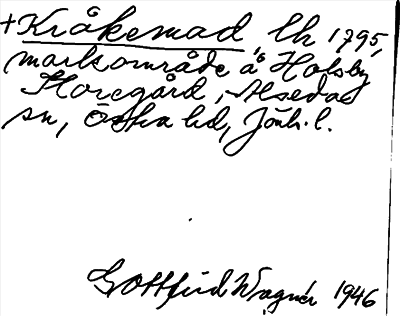 + Kråkemad, lh 1795,
markområde å Holsby
Storegård, Alseda
sn, Östra hd, Jönk. l.
Gottfrid Wagnér 1946